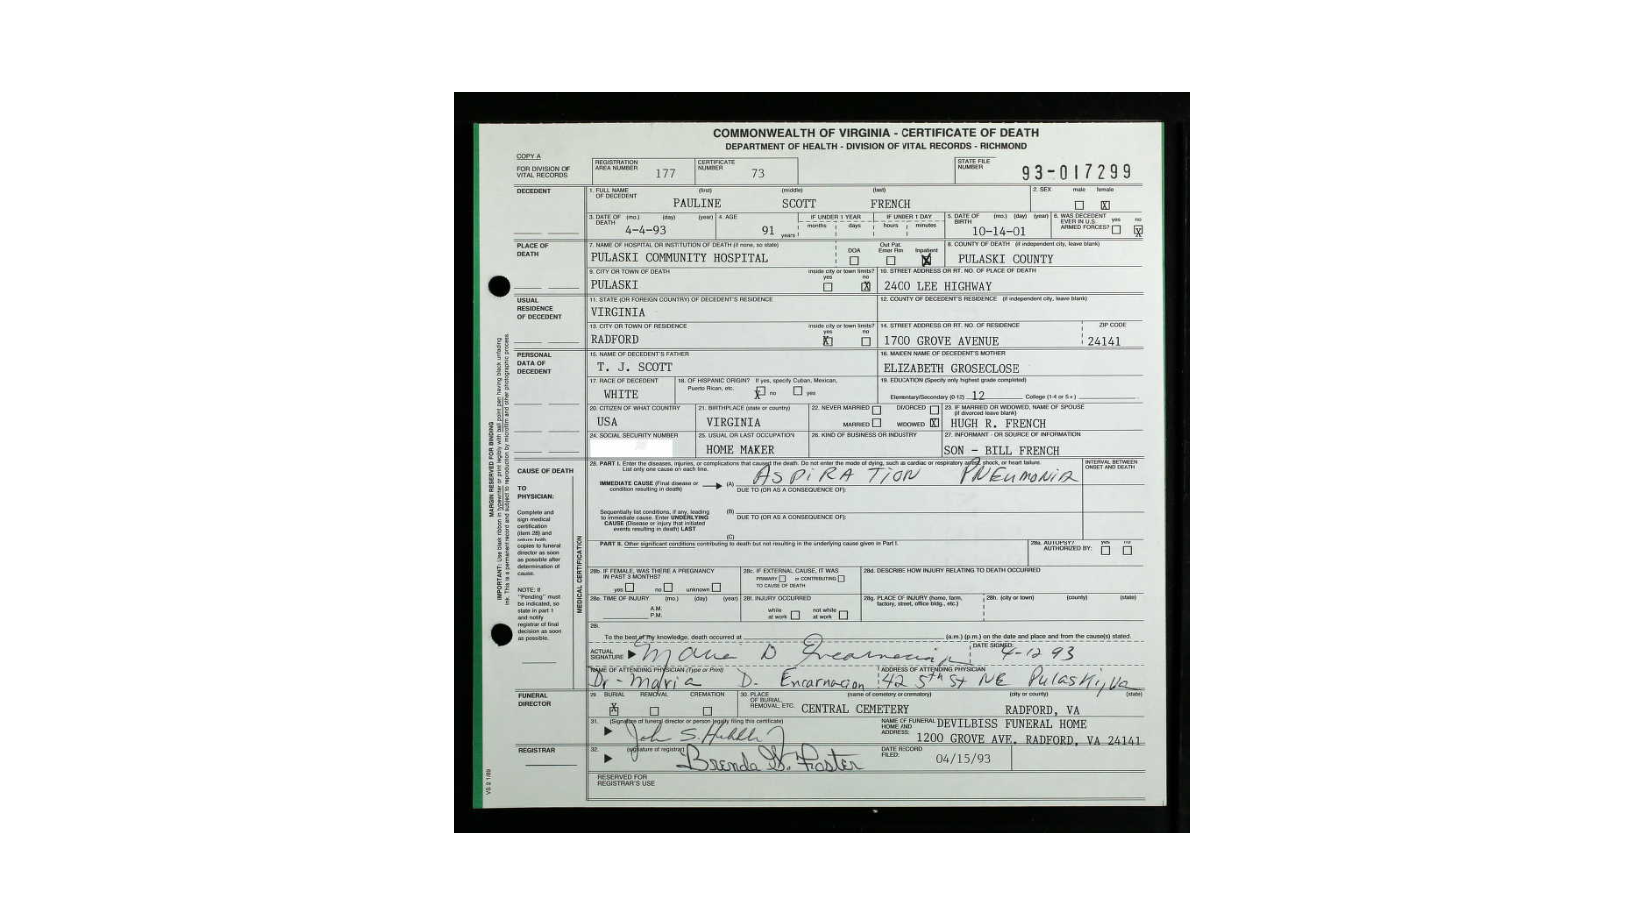 COMMONWEALTH OF VIRGINIA - CERTIFICATE OF DEATH
DEPARTMENT OF HEALTH - DIVISION OF VITAL RECORDS - RICHMOND
COPY A
FOR DIVISION OF VITAL RECORDS
REGISTRATION AREA NUMBER 177 CERTIFICATE NUMBER 73 STATE FILE NUMBER 93-017299
DECEDENT
1. FULL NAME OF DECEDENT (first) (middle) (last) 2. SEX male female
PAULINE SCOTT FRENCH X
3. DATE OF DEATH (mo.) (day) (year) 4. AGE IF UNDER 1 YEAR IF UNDER 1 DAY 5. DATE OF BIRTH (mo.) (day) (year) 6. WAS DECEDENT EVER IN U.S. ARMED FORCES? yes no
4-4-93 91 years months days hours minutes 10-14-01 X
PLACE OF DEATH
7. NAME OF HOSPITAL OR INSTITUTION OF DEATH (if none, so state) DOA Out Pat. Emer Rm Inpatient 8. COUNTY OF DEATH (if independent city, leave blank)
PULASKI COMMUNITY HOSPITAL X PULASKI COUNTY
9. CITY OR TOWN OF DEATH inside city or town limits? yes no 10. STREET ADDRESS OR RT. NO. OF PLACE OF DEATH
PULASKI X 2400 LEE HIGHWAY
USUAL RESIDENCE OF DECEDENT
11. STATE (OR FOREIGN COUNTRY) OF DECEDENT'S RESIDENCE 12. COUNTY OF DECEDENT'S RESIDENCE (if independent city, leave blank)
VIRGINIA
13. CITY OR TOWN OF RESIDENCE inside city or town limits? yes no 14. STREET ADDRESS OR RT. NO. OF RESIDENCE ZIP CODE
RADFORD X 1700 GROVE AVENUE 24141
PERSONAL DATA OF DECEDENT
15. NAME OF DECEDENT'S FATHER 16. MAIDEN NAME OF DECEDENT'S MOTHER
T. J. SCOTT ELIZABETH GROSECLOSE
17. RACE OF DECEDENT 18. OF HISPANIC ORIGIN? If yes, specify Cuban, Mexican, Puerto Rican, etc. no yes 19. EDUCATION (Specify only highest grade completed)
WHITE X Elementary/Secondary (0-12) 12 College (1-4 or 5+)
20. CITIZEN OF WHAT COUNTRY 21. BIRTHPLACE (state or country) 22. NEVER MARRIED DIVORCED 23. IF MARRIED OR WIDOWED, NAME OF SPOUSE (if divorced leave blank)
USA VIRGINIA MARRIED WIDOWED X HUGH R. FRENCH
24. SOCIAL SECURITY NUMBER 25. USUAL OR LAST OCCUPATION 26. KIND OF BUSINESS OR INDUSTRY 27. INFORMANT - OR SOURCE OF INFORMATION
HOME MAKER SON - BILL FRENCH
CAUSE OF DEATH
TO PHYSICIAN:
Complete and sign medical certification (item 28) and return both copies to funeral director as soon as possible after determination of cause.
NOTE: If "Pending" must be indicated, so state in part 1 and notify registrar of final decision as soon as possible.
MEDICAL CERTIFICATION
28. PART I. Enter the diseases, injuries, or complications that caused the death. Do not enter the mode of dying, such as cardiac or respiratory arrest, shock, or heart failure. List only one cause on each line. INTERVAL BETWEEN ONSET AND DEATH
IMMEDIATE CAUSE (Final disease or condition resulting in death) (A) Aspiration Pneumonia
DUE TO (OR AS A CONSEQUENCE OF):
Sequentially list conditions, if any, leading to immediate cause. Enter UNDERLYING CAUSE (Disease or injury that initiated events resulting in death) LAST (B)
DUE TO (OR AS A CONSEQUENCE OF):
(C)
PART II. Other significant conditions contributing to death but not resulting in the underlying cause given in Part I. 28a. AUTOPSY? AUTHORIZED BY: yes no
28b. IF FEMALE, WAS THERE A PREGNANCY IN PAST 3 MONTHS? yes no unknown 28c. IF EXTERNAL CAUSE, IT WAS PRIMARY or CONTRIBUTING TO CAUSE OF DEATH 28d. DESCRIBE HOW INJURY RELATING TO DEATH OCCURRED
28e. TIME OF INJURY (mo.) (day) (year) A.M. P.M. 28f. INJURY OCCURRED while at work not while at work 28g. PLACE OF INJURY (home, farm, factory, street, office bldg., etc.) 28h. (city or town) (county) (state)
28i. To the best of my knowledge, death occurred at (a.m.) (p.m.) on the date and place and from the cause(s) stated.
ACTUAL SIGNATURE Maria D Encarnacion DATE SIGNED: 4-12 93
NAME OF ATTENDING PHYSICIAN (Type or Print) ADDRESS OF ATTENDING PHYSICIAN
Dr. Maria D. Encarnacion 42 5th St NE Pulaski, Va
FUNERAL DIRECTOR
29. BURIAL REMOVAL CREMATION 30. PLACE OF BURIAL, REMOVAL, ETC. (name of cemetery or crematory) (city or county) (state)
X CENTRAL CEMETERY RADFORD, VA
31. (Signature of funeral director or person legally filing this certificate) NAME OF FUNERAL HOME AND ADDRESS: DEVILBISS FUNERAL HOME
John S. 1200 GROVE AVE. RADFORD, VA 24141
REGISTRAR
32. (signature of registrar) DATE RECORD FILED:
Brenda G. Foster 04/15/93
RESERVED FOR REGISTRAR'S USE
MARGIN RESERVED FOR BINDING